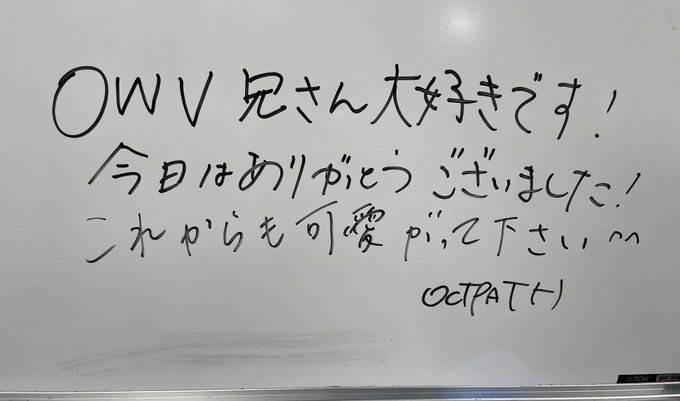 OWV 兄さん大好きです!
今日はありがとうございました!
これからも可愛がって下さい^^
OCTPATH